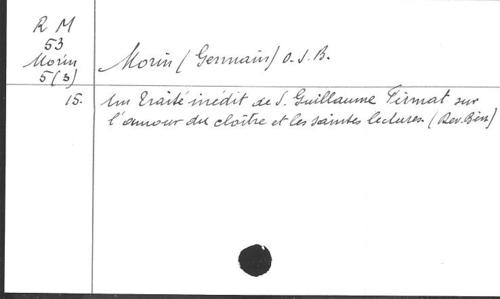 R M
53
Morin
5(3)
Morin (Germain) O.S.B.
15. Un Traité inédit de S. Guillaume Firmat sur
l'amour du cloître et les saintes lectures. (Rev. Bén)